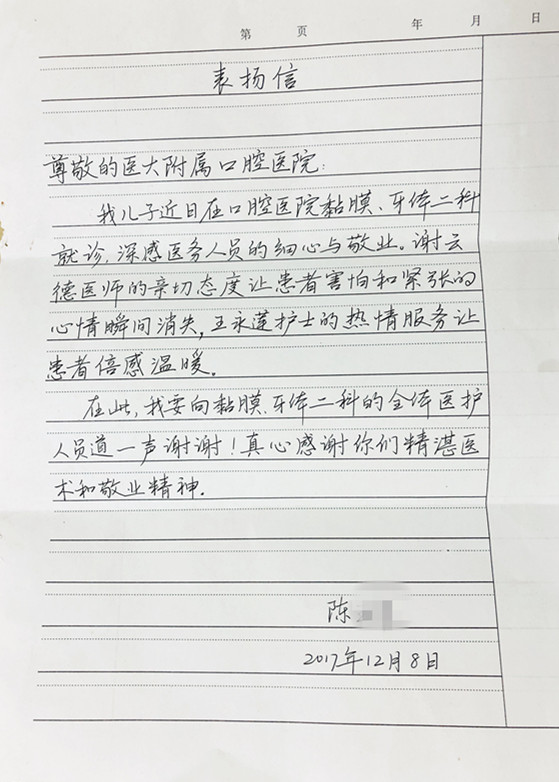 第 页 年 月 日
表扬信
尊敬的医大附属口腔医院：
我儿子近日在口腔医院黏膜、牙体二科
就诊，深感医务人员的细心与敬业。谢云
德医师的亲切态度让患者害怕和紧张的
心情瞬间消失，王永莲护士的热情服务让
患者倍感温暖。
在此，我要向黏膜、牙体二科的全体医护
人员道一声谢谢！真心感谢你们精湛医
术和敬业精神．
陈
2017年12月8日